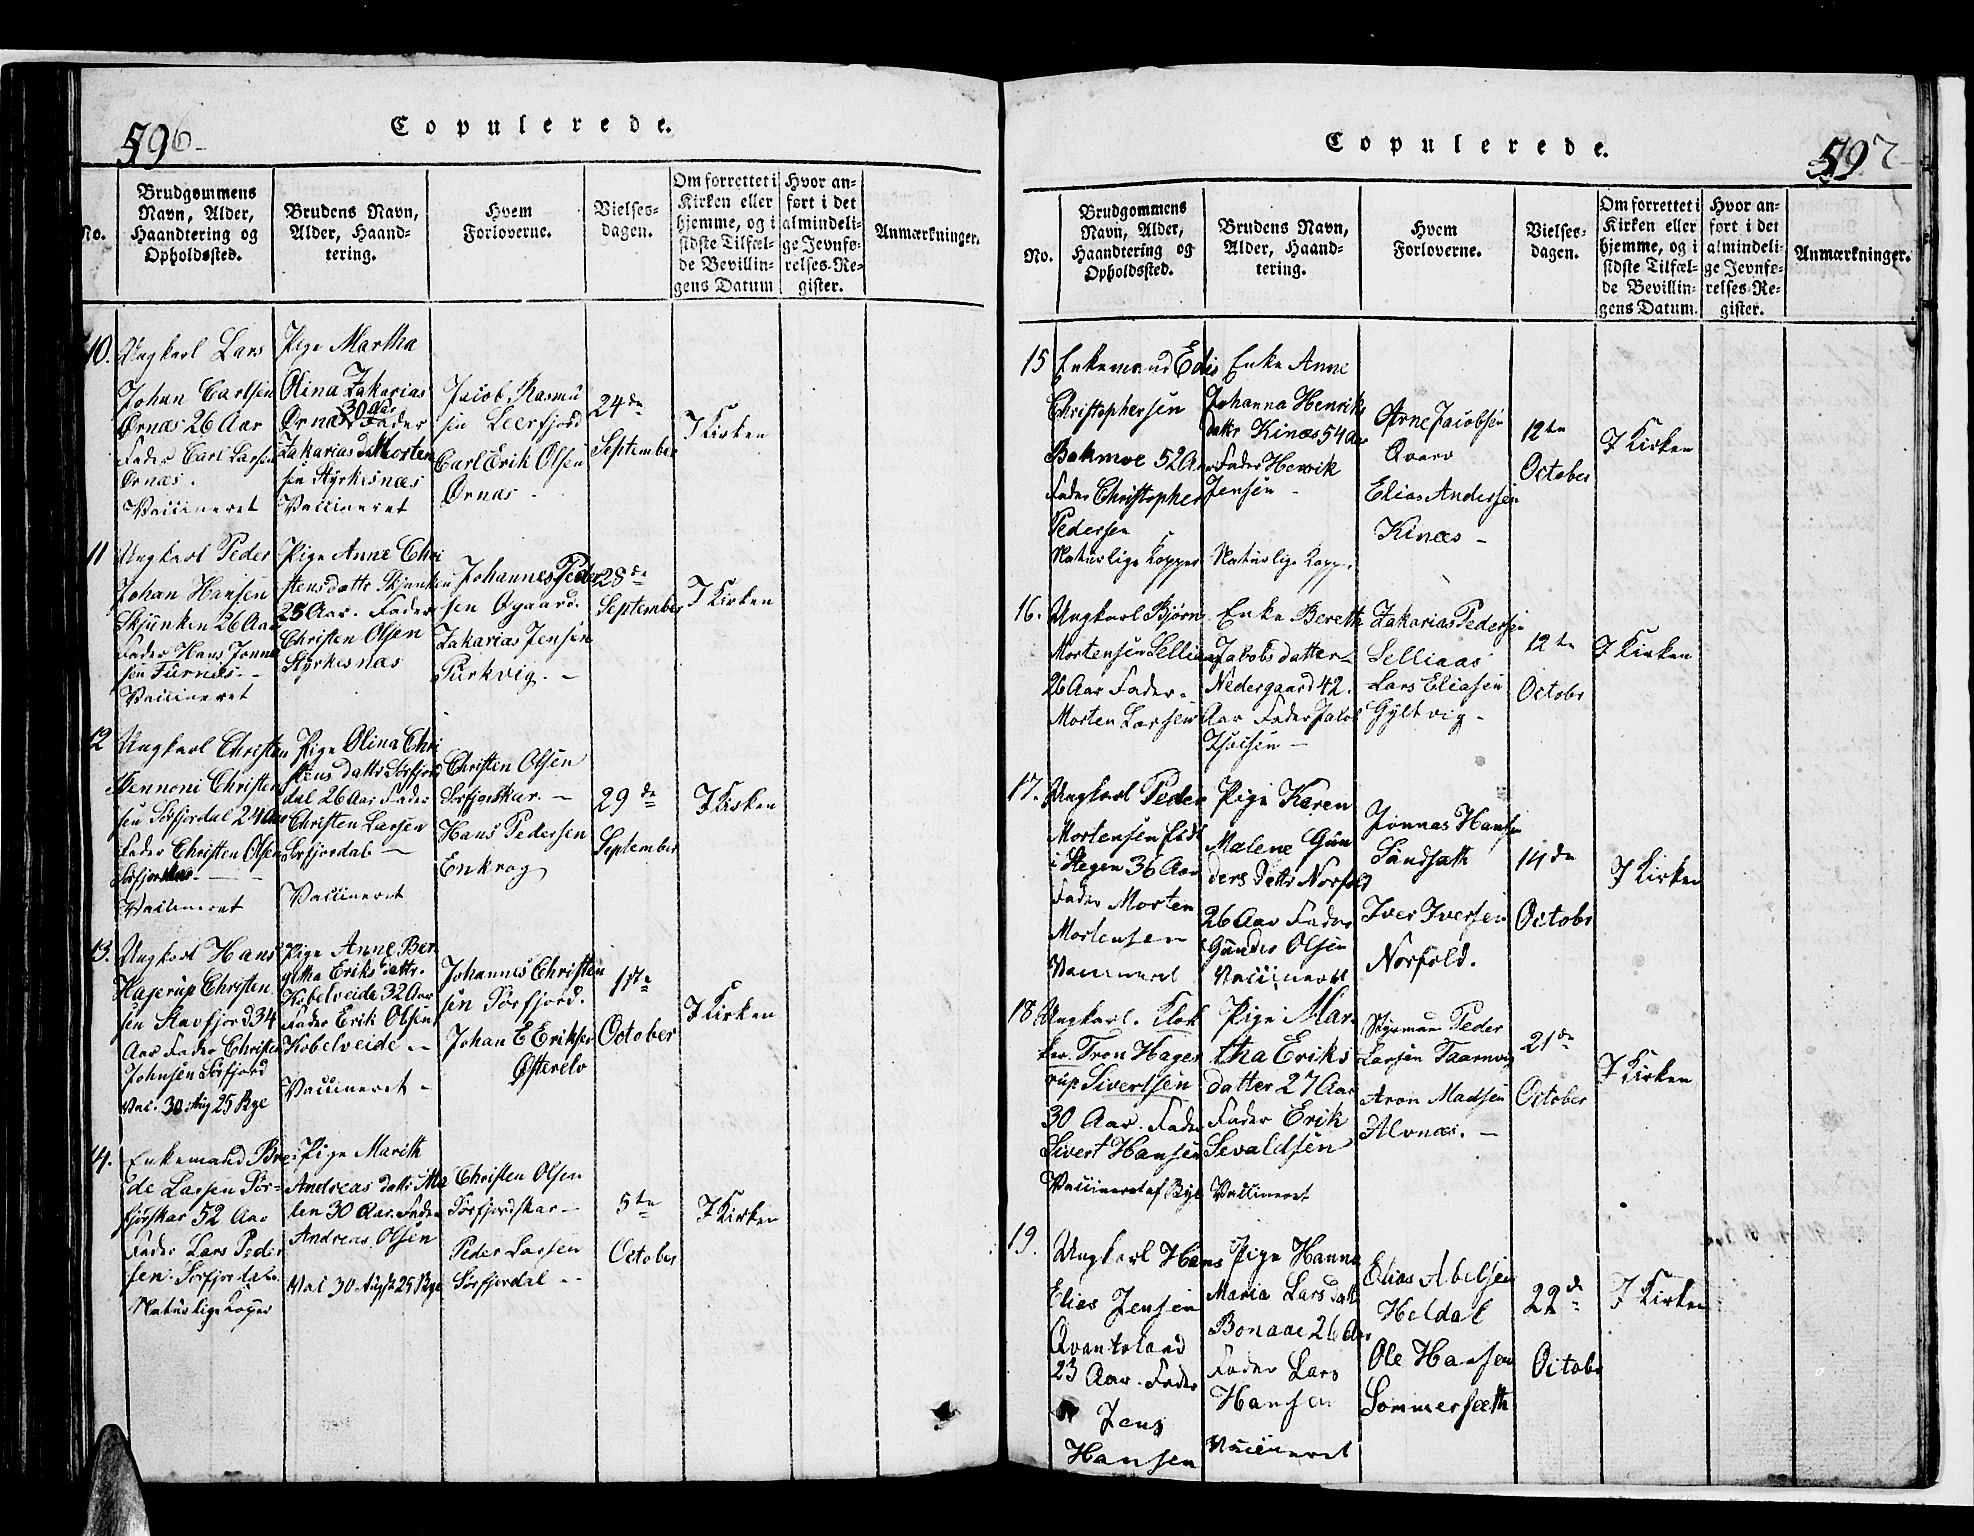 596
Copulerede.
No.
Brudgommens
Navn, Alder,
Haandtering og
Opholdssted.
Brudens Navn,
Alder, Haand-
tering.
Hvem
Forloverne.
Vielses-
dagen.
Om forrettet i
Kirken eller
hjemme, og i
sidste Tilfæl-
de Bevillin-
gens Datum
Hvor an-
ført i det
almindeli-
ge Jevnfø-
relses-Re-
gister.
Anmærkninger.
10.
Ungkarl Lars
Johan Carlsen
Ørnæs 26 Aar
Fader Carl Larsen
Ørnæs.
Vaccineret
Pige Martha
Olina Zakarias
30 Aar
Ørnæs Fader
Zakarias Morten
sen Styrkesnæs
Vaccineret
Jacob Rasmu
sen Leerfjord
Carl Erik Olsen
Ørnæs -
24de
September
I Kirken
11
Ungkarl Peder
Johan Hansen
Skjunken 26 Aar
Fader Hans Jonna
sen Furnæs. -
Vaccineret
Pige Anne Chri
stensdattr Skjunken
28 Aar. Fader
Christen Olsen
Styrkesnæs
Johannes Peder
sen Øgaard.
Zakarias Jensen
Purkvig. -
28de
September
I Kirken
12
Ungkarl Christen
Mennoni Christen
sen Sørfjordal 24 Aar
Fader Christen Olsen
Sørfjordskar -
Vaccineret
Pige Olina Chri
stens dattr Sørfjord
dal 26 Aar Fader
Christen Larsen
Sørfjordal -
Vaccineret
Christen Olsen
Sørfjordskar. -
Hans Pedersen
Enkrog
29de
September
I Kirken
13.
Ungkarl Hans
Hagerup Christen
sen Stavfjord 34
Aar Fader Christen
Johnsen Sørfjord
Vac. 30 Aug 25 Bye
Pige Anne Ber
githa Eriks dattr.
Kobelveide 32 Aar
Fader Erik Olsen
Kobelveide. -
Vaccineret -
Johannes Christen
sen Sørfjord.
Johan E Eriksen
Østerelv
1ste
October
I Kirken
14.
Enkemand Bre
de Larsen Sør-
fjorskar 52 Aar
Fader Lars Peder
sen. Sørfjordal.
Naturlige Koper
Pige Marith
Andreas dattr Ma
len 30 Aar. Fader
Andreas Olsen
Vac 30 Augst 25 Bye
Christen Olsen
Sørfjordskar -
Peder Larsen
Sørfjordal - -
5te
October
I Kirken
597
Copulerede.
No.
Brudgommens
Navn, Alder,
Haandtering og
Opholdssted.
Brudens Navn,
Alder, Haand-
tering.
Hvem
Forloverne.
Vielses-
dagen.
Om forrettet i
Kirken eller
hjemme, og i
sidste Tilfæl-
de Bevillin-
gens Datum.
Hvor an-
ført i det
almindeli-
ge Jevnfø-
relses-Re-
gister.
Anmærkninger.
15
Enkemand Edis
Christophersen
Bakmoe 52 Aar
Fader Christopher
Pedersen
Naturlige Kopper
Enke Anne
Johanna Henriks
dattr Kinæs 54 Aar
Fader Henrik
Jensen -
Naturlige Kopp.
Arne Jacobsen
Qvarv
Elias Andersen
Kinæs -
12te
October
I Kirken
16.
Ungkarl Bjørn
Mortensen Selliaas
26 Aar Fader.
Morten Larsen
Enke Bereth
Jakobs datter -
Nedergaard 42.
Aar Fader Jacob
Isacsen -
Zakarias Pedersen
Selliaas
Lars Eliasen
Gyltvig -
12te
Octobr
I Kirken
17.
Ungkarl Peder
Mortensen født
i Stegen 36 Aar
Fader Morten
Mortensen
Vaccineret
Pige Karen
Malene Gun
ders dattr Norfold
26 Aar Fader
Gunder Olsen
Vaccineret
Jonnas Hansen
Sandsath
Iver Iversen
Norfold.
14de
Octobr
I Kirken
18
Ungkarl. Klok
ker. Tron Hage
rup Sivertsen
30 Aar. Fader
Sivert Hansen
Vaccineret af Bye
Pige Mar
tha Eriks
datter 27 Aar
Fader Erik
Sevaldsen
Vaccineret
Styrman Peder
Larsen Taarnvig
Aron Madsen
Alvnæs. -
21de
October
I Kirken
19.
Ungkarl Hans
Elias Jensen
Qvantoland
23 Aar. Fader
Jens
Hansen
Pige Hanna
Maria Lars datt
Bonaae 26 Aar
Fader Lars
Hansen
Vaccineret
Elias Abelsen
Heldal
Ole Hansen
Sommerseth
22de
Octobr
I Kirken